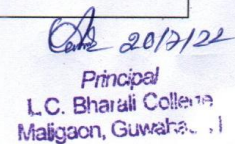 20/7/22
Principal
L.C. Bharali College
Maligaon, Guwaha